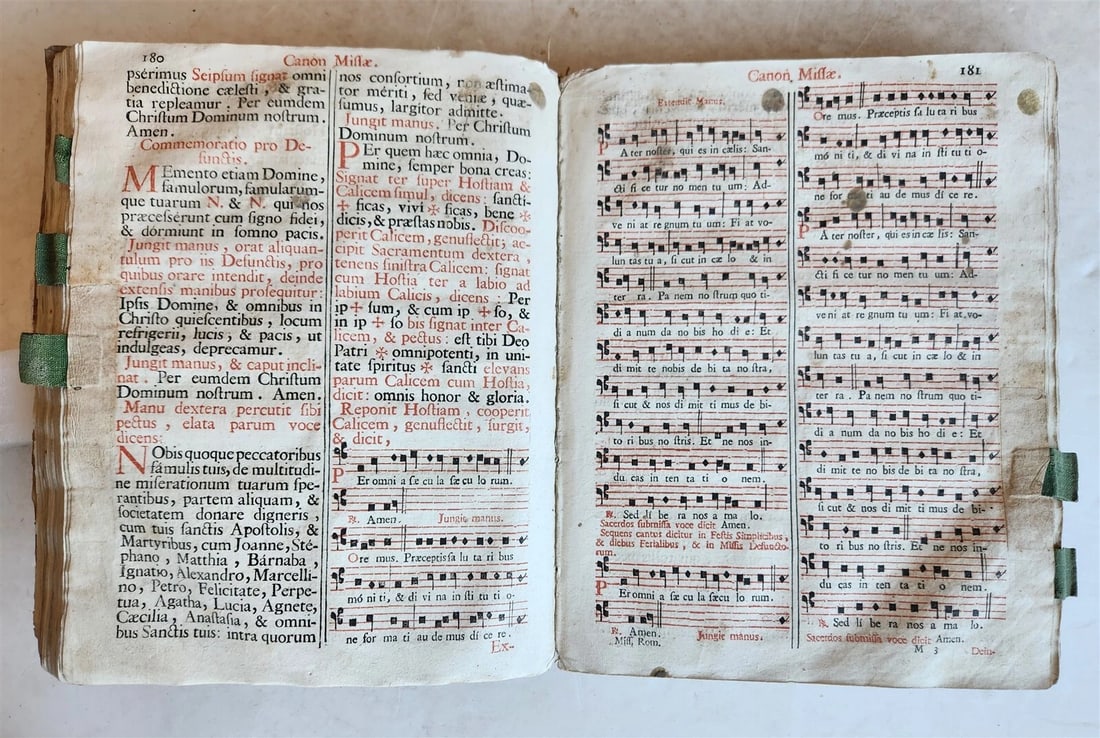 180
Canon Missæ.
psérimus Seipsum signat omni
benedictione cælesti, & gra-
tia repleamur: Per eumdem
Christum Dominum nostrum.
Amen.
Commemoratio pro De-
functis.
MEmento etiam Domine,
famulorum, famularum-
que tuarum N. & N. qui nos
præcesserunt cum signo fidei,
& dormiunt in somno pacis.
Jungit manus, orat aliquan-
tulum pro iis Defunctis, pro
quibus orare intendit, deinde
extensis manibus prosequitur:
Ipsis Domine, & omnibus in
Christo quiescentibus, locum
refrigerii, lucis, & pacis, ut
indulgeas, deprecamur.
Jungit manus, & caput incli-
nat. Per eumdem Christum
Dominum nostrum. Amen.
Manu dextera percutit sibi
pectus, elata parum voce
dicens:
NObis quoque peccatoribus
famulis tuis, de multitudi-
ne miserationum tuarum spe-
rantibus, partem aliquam, &
societatem donare digneris,
cum tuis sanctis Apostolis, &
Martyribus, cum Joanne, Sté-
phano, Matthia, Bárnaba,
Ignatio, Alexandro, Marcelli-
no, Petro, Felicitate, Perpe-
tua, Agatha, Lucia, Agnete,
Cæcilia, Anastasia, & omni-
bus Sanctis tuis: intra quorum
nos consortium, non æstima-
tor mériti, sed veniæ, quæ-
sumus, largitor admitte.
Jungit manus. Per Christum
Dominum nostrum.
PEr quem hæc omnia, Do-
mine, semper bona creas:
Signat ter super Hostiam &
Calicem simul, dicens: sancti-
✠ ficas, vivi ✠ ficas, bene ✠
dicis, & præstas nobis. Discoo-
perit Calicem, genuflectit, ac-
cipit Sacramentum dextera,
tenens sinistra Calicem: signat
cum Hostia ter a labio ad
labium Calicis, dicens: Per
ip ✠ sum, & cum ip ✠ so, &
in ip ✠ so bis signat inter Ca-
licem, & pectus: est tibi Deo
Patri ✠ omnipotenti, in uni-
tate spiritus ✠ sancti elevans
parum Calicem cum Hostia,
dicit: omnis honor & gloria.
Reponit Hostiam, cooperit
Calicem, genuflectit, surgit,
& dicit,
PEr omni a sæ cu la sæ cu lo rum.
℟. Amen. Jungit manus.
Ore mus. Præceptis sa lu ta ri bus
mó ni ti, & di vi na in sti tu ti o-
ne for ma ti au de mus di ce re.
Ex-
Canon Missæ.
181
Extendit Manus.
PAter noster, qui es in cælis: San-
cti fi ce tur no men tu um: Ad-
ve ni at re gnum tu um: Fi at vo-
lun tas tu a, si cut in cæ lo & in
ter ra. Pa nem no strum quo ti-
di a num da no bis ho di e: Et
di mit te nobis de bi ta no stra,
si cut & nos di mit ti mus de bi-
to ri bus no stris. Et ne nos in-
du cas in ten ta ti o nem.
℟. Sed li be ra nos a ma lo.
Sacerdos submissa voce dicit Amen.
Sequens cantus dicitur in Festis Simplicibus,
& diebus Ferialibus, & in Missis Defuncto-
rum.
PEr omni a sæ cu la sæcu lo rum.
℟. Amen. Jungit manus.
Miss. Rom.
Ore mus. Præceptis sa lu ta ri bus
mó ni ti, & di vi na in sti tu ti o-
ne for au de mus di ce re.
PAter noster, qui es in cæ lis: San-
cti fi ce tur no men tu um: Ad-
ve ni at re gnum tu um: Fi at vo-
lun tas tu a, si cut in cæ lo & in
ter ra. Pa nem no strum quo ti-
di a num da no bis ho di e: Et
di mit te no bis de bi ta no stra,
si cut & nos di mit ti mus de bi-
to ri bus no stris. Et ne nos in-
du cas in ten ta ti o nem.
℟. Sed li be ra nos a ma lo.
Sacerdos submissa voce dicit Amen.
M 3
Dein-